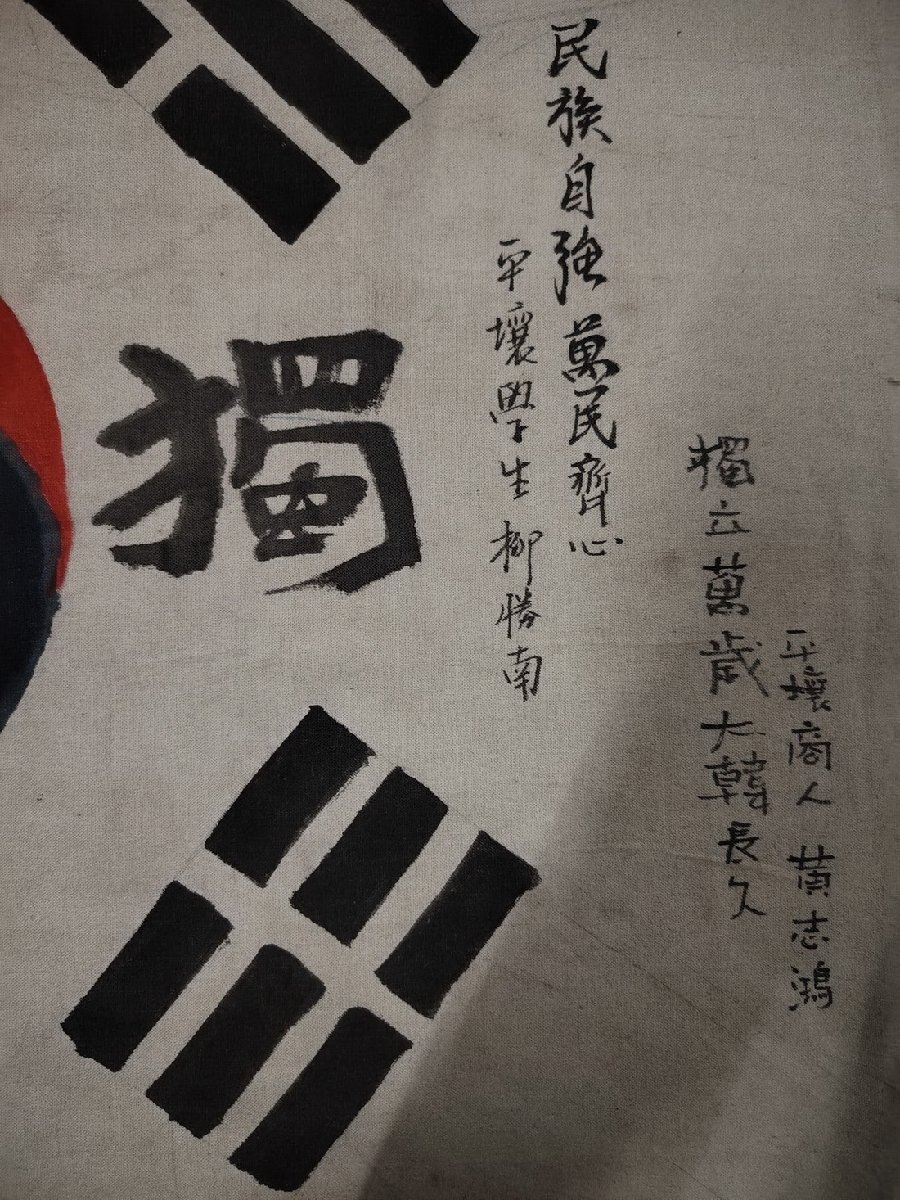 平壤商人 黄志鴻
獨立萬歲大韓長久
民族自強萬民齊心
平壤學生 柳勝南
獨